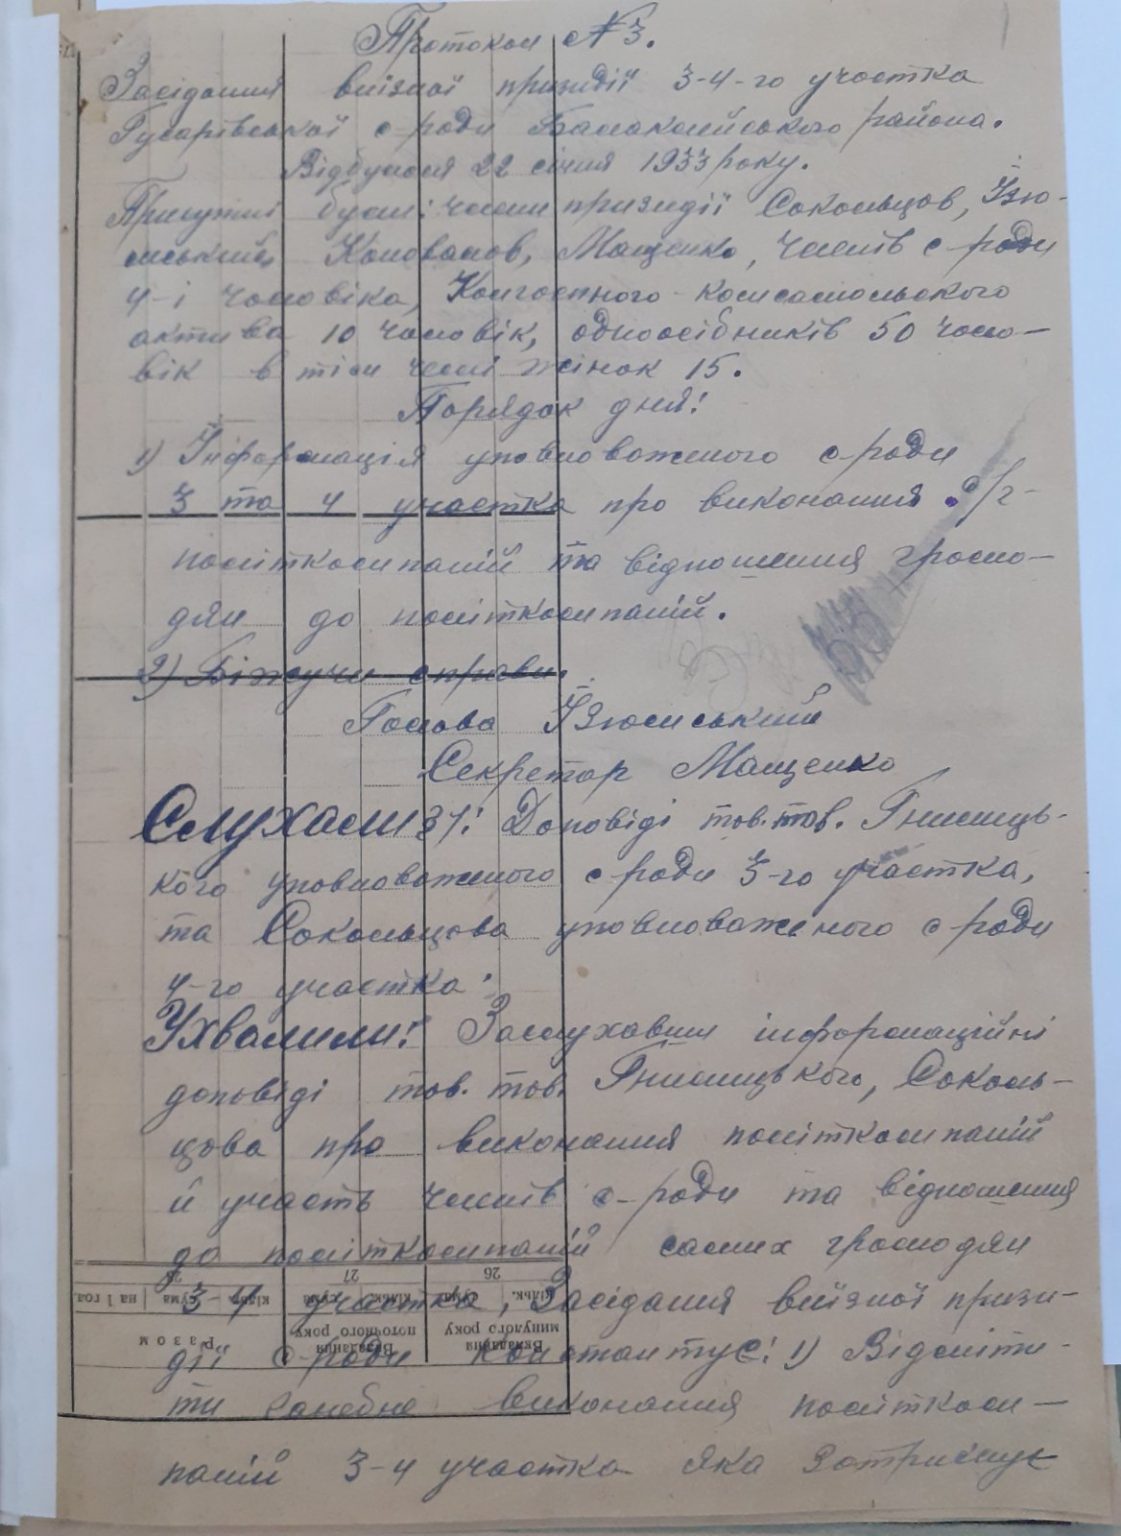 Протокол №3.
Засідання виізної призидії 3-4-го участка
Гусарівської с-ради Балаклійського района.
Відбулося 22 січня 1933 року.
Присутні були: члени призидії Сокольцов, Ізю-
мський, Коновалов, Мащенко, членів с-ради
4-і чоловіка, Колгоспного-комсомольского
актива 10 чоловік, одноосібників 50 чоло-
вік в тім числі жінок 15.
Порядок дня:
1) Інформація уповноваженого с-ради
3 та 4 участка про виконання с/г-
політкампаній та відношення громо-
дян до політкампаній.
2) Біжучи справи.
Голова Ізюмський
Секретар Мащенко
Слухали §1: Доповіді тов. тов. Гнилиць-
кого уповноваженого с-ради 3-го участка,
та Сокольцова уповноваженого с-ради
4-го участка.
Ухвалили: Заслухавши інформаційні
доповіді тов. тов. Гнилицького, Соколь-
цова про виконання політкампаній
й участь членів с-ради та відношення
до політкампаній самих громодян
3-4 участка, Засідання виізної призи-
дії с-ради константує: 1) Відміти-
ти ганебне виконання політкам-
паній 3-4 участка яка Затримує
26
27
кільк. сума кільк. сума кільк. сума на 1 гол
Вкладання минулого року
Вкладання поточного року
Разом